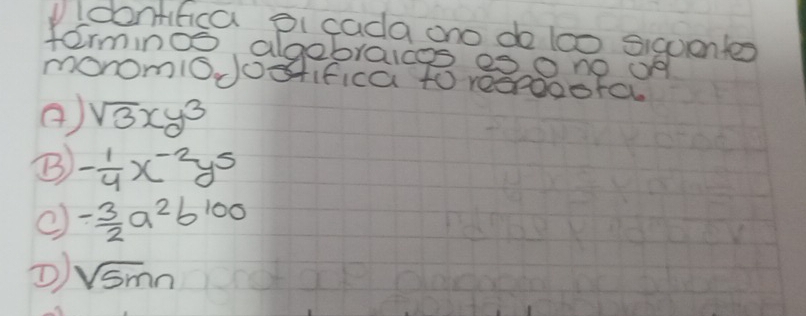 Identifica si cada uno de los siguientes
términos algebraicos es o no un
monomio, Justifica tu respuesta.
A) √3xy³
B) -1/4 x⁻²y⁵
C) -3/2 a²b¹⁰⁰
D) √5mn